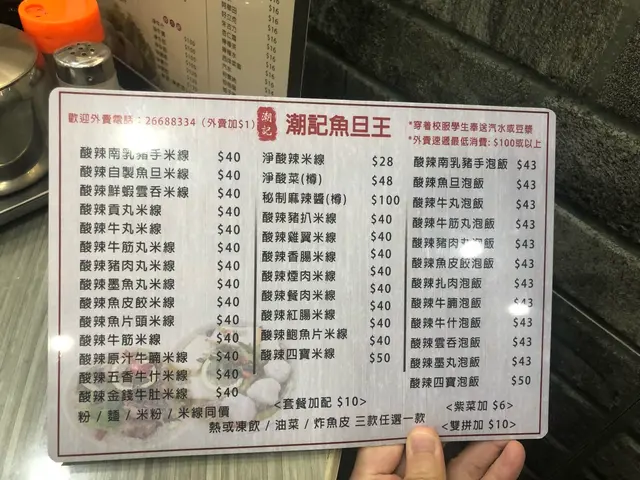 歡迎外賣電話：26688334（外賣加$1）
潮記
潮記魚旦王
*穿着校服學生奉送汽水或豆漿
*外賣速遞最低消費: $100或以上
酸辣南乳豬手米線 $40
酸辣自製魚旦米線 $40
酸辣鮮蝦雲吞米線 $40
酸辣貢丸米線 $40
酸辣牛丸米線 $40
酸辣牛筋丸米線 $40
酸辣豬肉丸米線 $40
酸辣墨魚丸米線 $40
酸辣魚皮餃米線 $40
酸辣魚片頭米線 $40
酸辣牛筋米線 $40
酸辣原汁牛腩米線 $40
酸辣五香牛什米線 $40
酸辣金錢牛肚米線 $40
粉 / 麵 / 米粉 / 米線同價
淨酸辣米線 $28
淨酸菜(樽) $48
秘制麻辣醬(樽) $100
酸辣豬扒米線 $40
酸辣雞翼米線 $40
酸辣香腸米線 $40
酸辣煙肉米線 $40
酸辣餐肉米線 $40
酸辣紅腸米線 $40
酸辣鮑魚片米線 $40
酸辣四寶米線 $50
<套餐加配 $10>
熱或凍飲 / 油菜 / 炸魚皮 三款任選一款
酸辣南乳豬手泡飯 $43
酸辣魚旦泡飯 $43
酸辣牛丸泡飯 $43
酸辣牛筋丸泡飯 $43
酸辣豬肉丸泡飯 $43
酸辣魚皮餃泡飯 $43
酸辣扎肉泡飯 $43
酸辣牛腩泡飯 $43
酸辣牛什泡飯 $43
酸辣雲吞泡飯 $43
酸辣墨丸泡飯 $43
酸辣四寶泡飯 $50
<紫菜加 $6>
<雙拼加 $10>